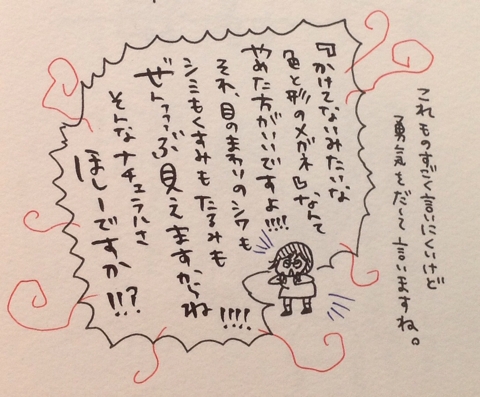 これものすごく言いにくいけど
勇気をだして言いますね。
『かけてないみたいな
色と形のメガネ』なんて
やめた方がいいですよ!!!!
それ、目のまわりのシワも
シミもくすみもたるみも
ぜんっっぶ見えますからね!!!!
そんなナチュラルさ
ほしーですか!!?